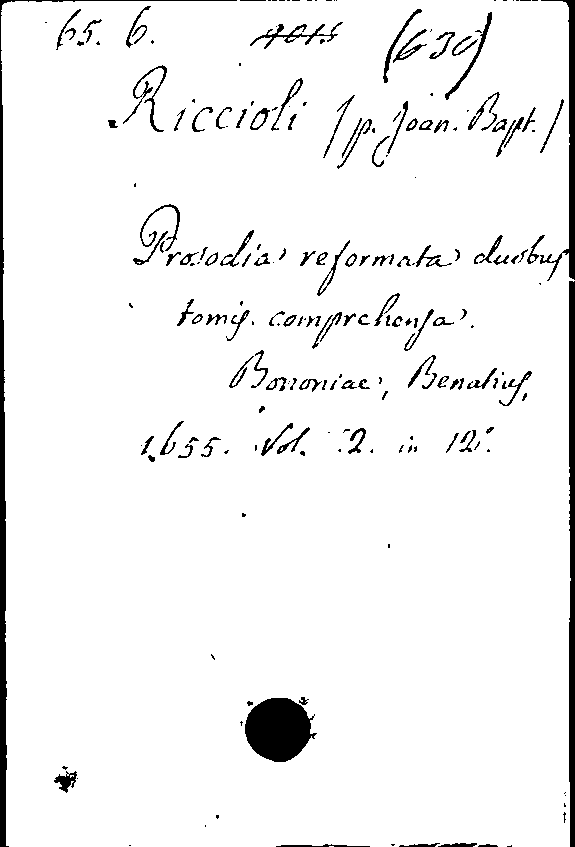 65. 6. (630)
Riccioli /p. Joan. Bapt./
Prosodia reformata duobus
tomis. comprehensa.
Bononiae, Benatius,
1655. Vol. 2. in 12°.